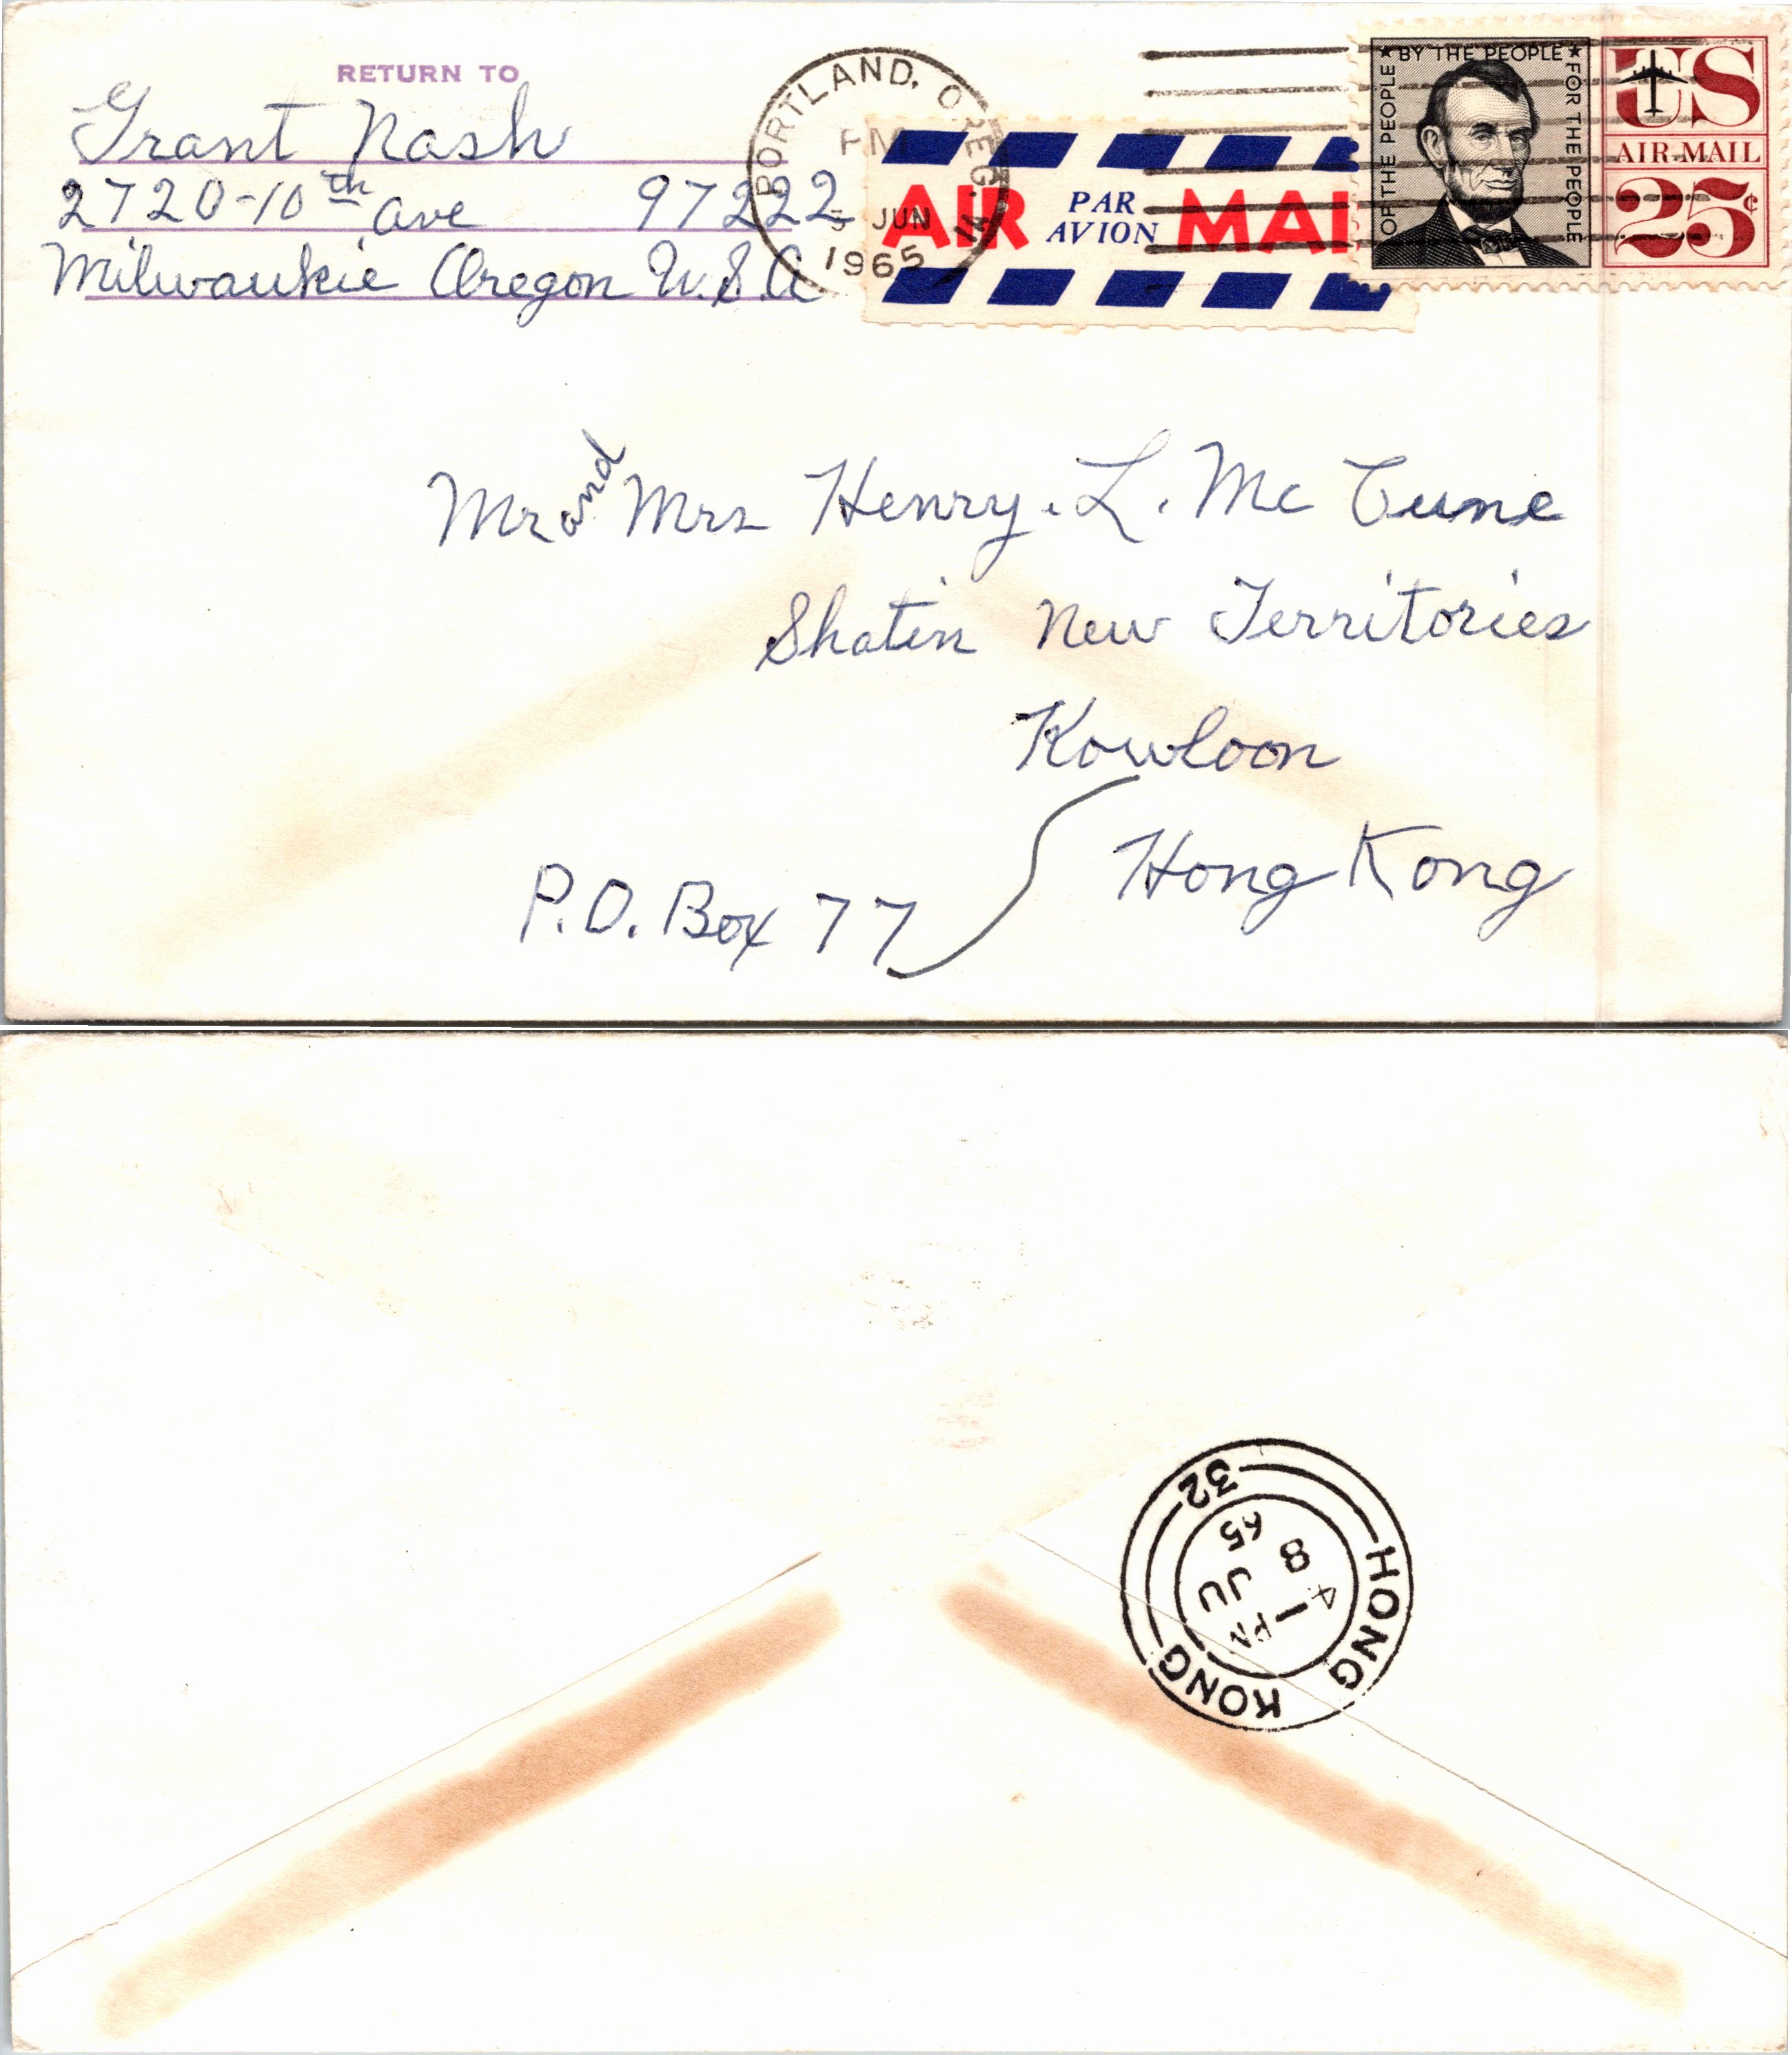 RETURN TO
Grant Nash
2720-10th ave 97222
Milwaukie Oregon U.S.A
PORTLAND, OREG.
PM
5 JUN
1965
AIR PAR AVION MAI
OF THE PEOPLE ★ BY THE PEOPLE ★ FOR THE PEOPLE
US
AIR MAIL
25¢
Mr and Mrs Henry. L. Mc Cune
Shatin New Territories
Kowloon
Hong Kong
P.O. Box 77
HONG KONG
32
1 PM
8 JU
65